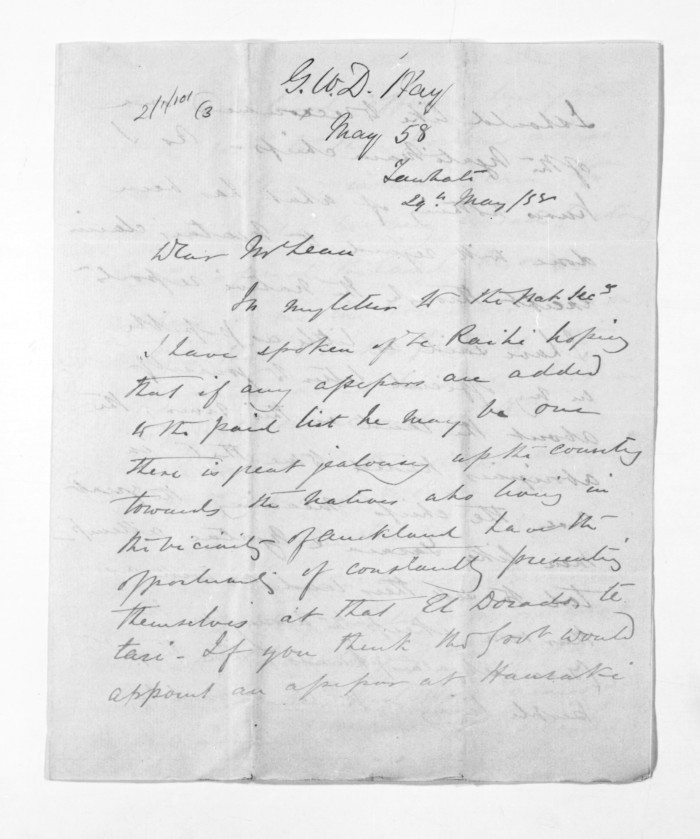 G.W.D. Hay
May 58
29th May/58
Dear McLean
In my letter to the Nat Secy
I have spoken of Te Raihi hoping
that if any assessors are added
to the paid list he may be one
there is great jealousy up the country
towards the Natives who living in
the vicinity of Auckland have the
opportunity of constantly presenting
themselves at that El Dorado te
tari - If you think the Govt would
appoint an assessor at Hauraki